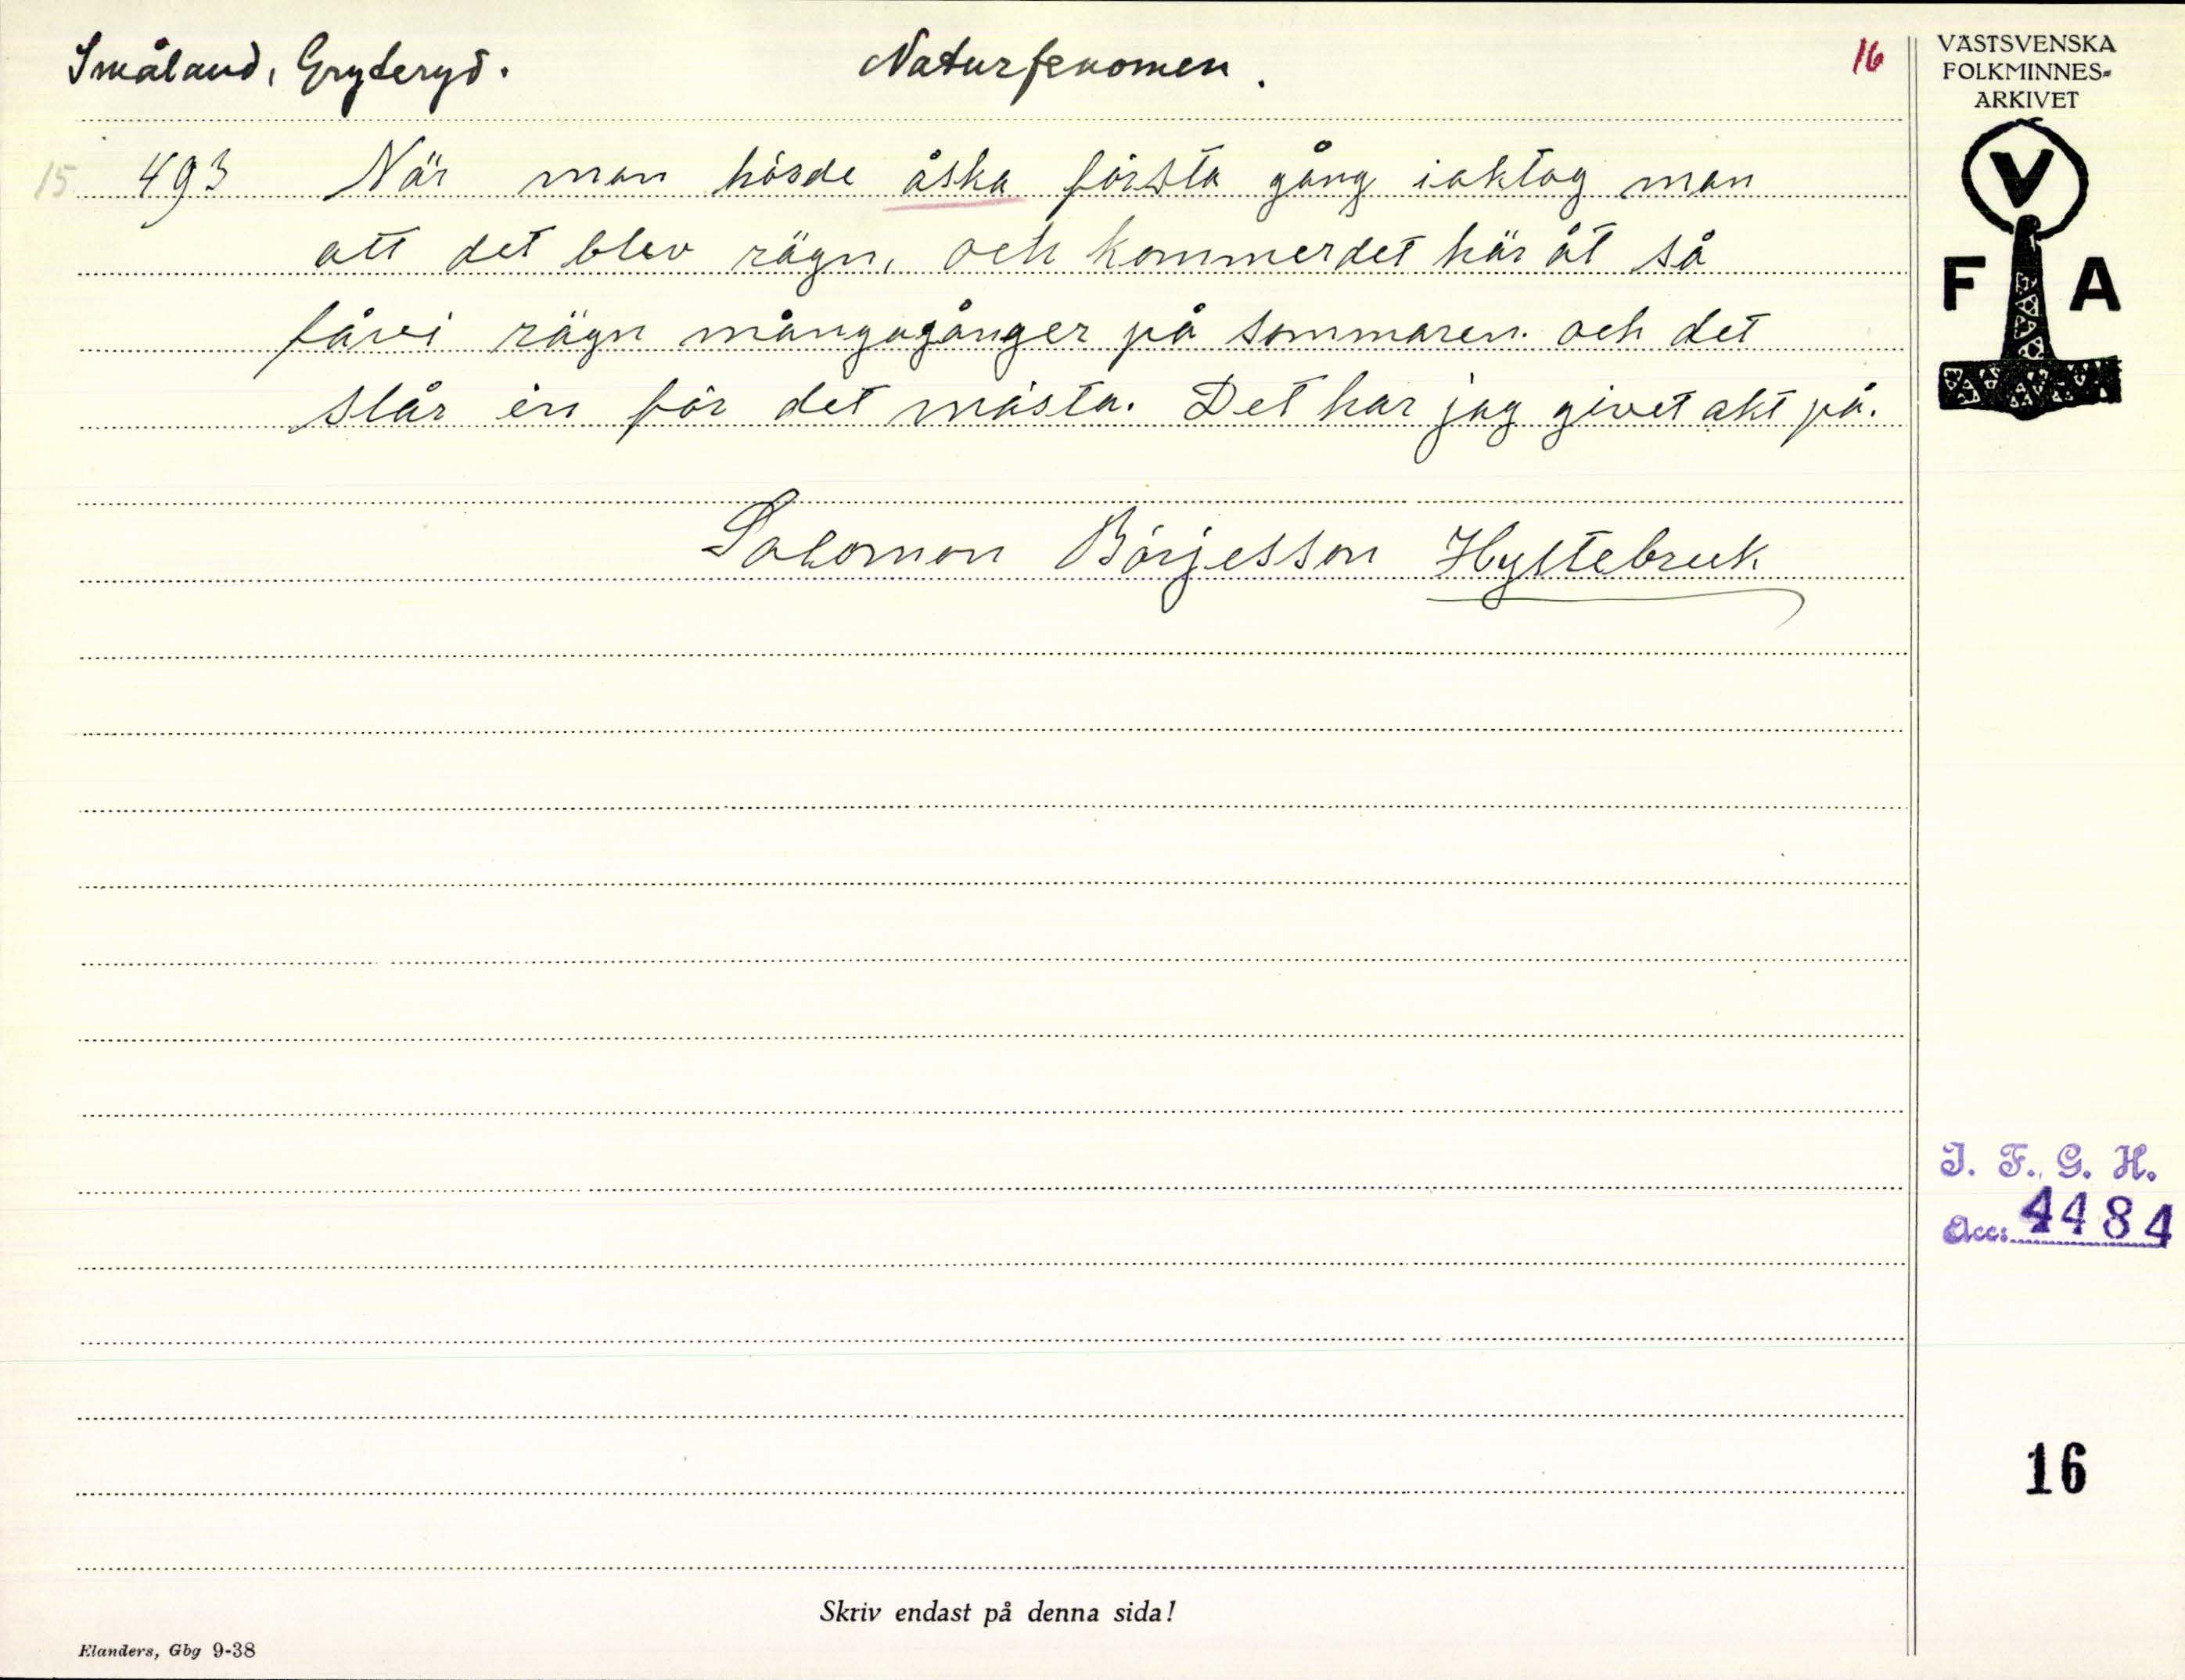 Småland, Gryteryd.
Naturfenomen.
16
VÄSTSVENSKA
FOLKMINNES-
ARKIVET
V
F A
15 493 När man hörde åska första gång iaktog man
att det blev rägn, och kommerdet här åt så
fåvi rägn mångagånger på sommaren. och det
slår in för det mästa. Det har jag givet akt på.
Salomon Börjesson Hyltebruk
I. F. G. H.
Acc: 4484
16
Skriv endast på denna sida!
Elanders, Gbg 9-38